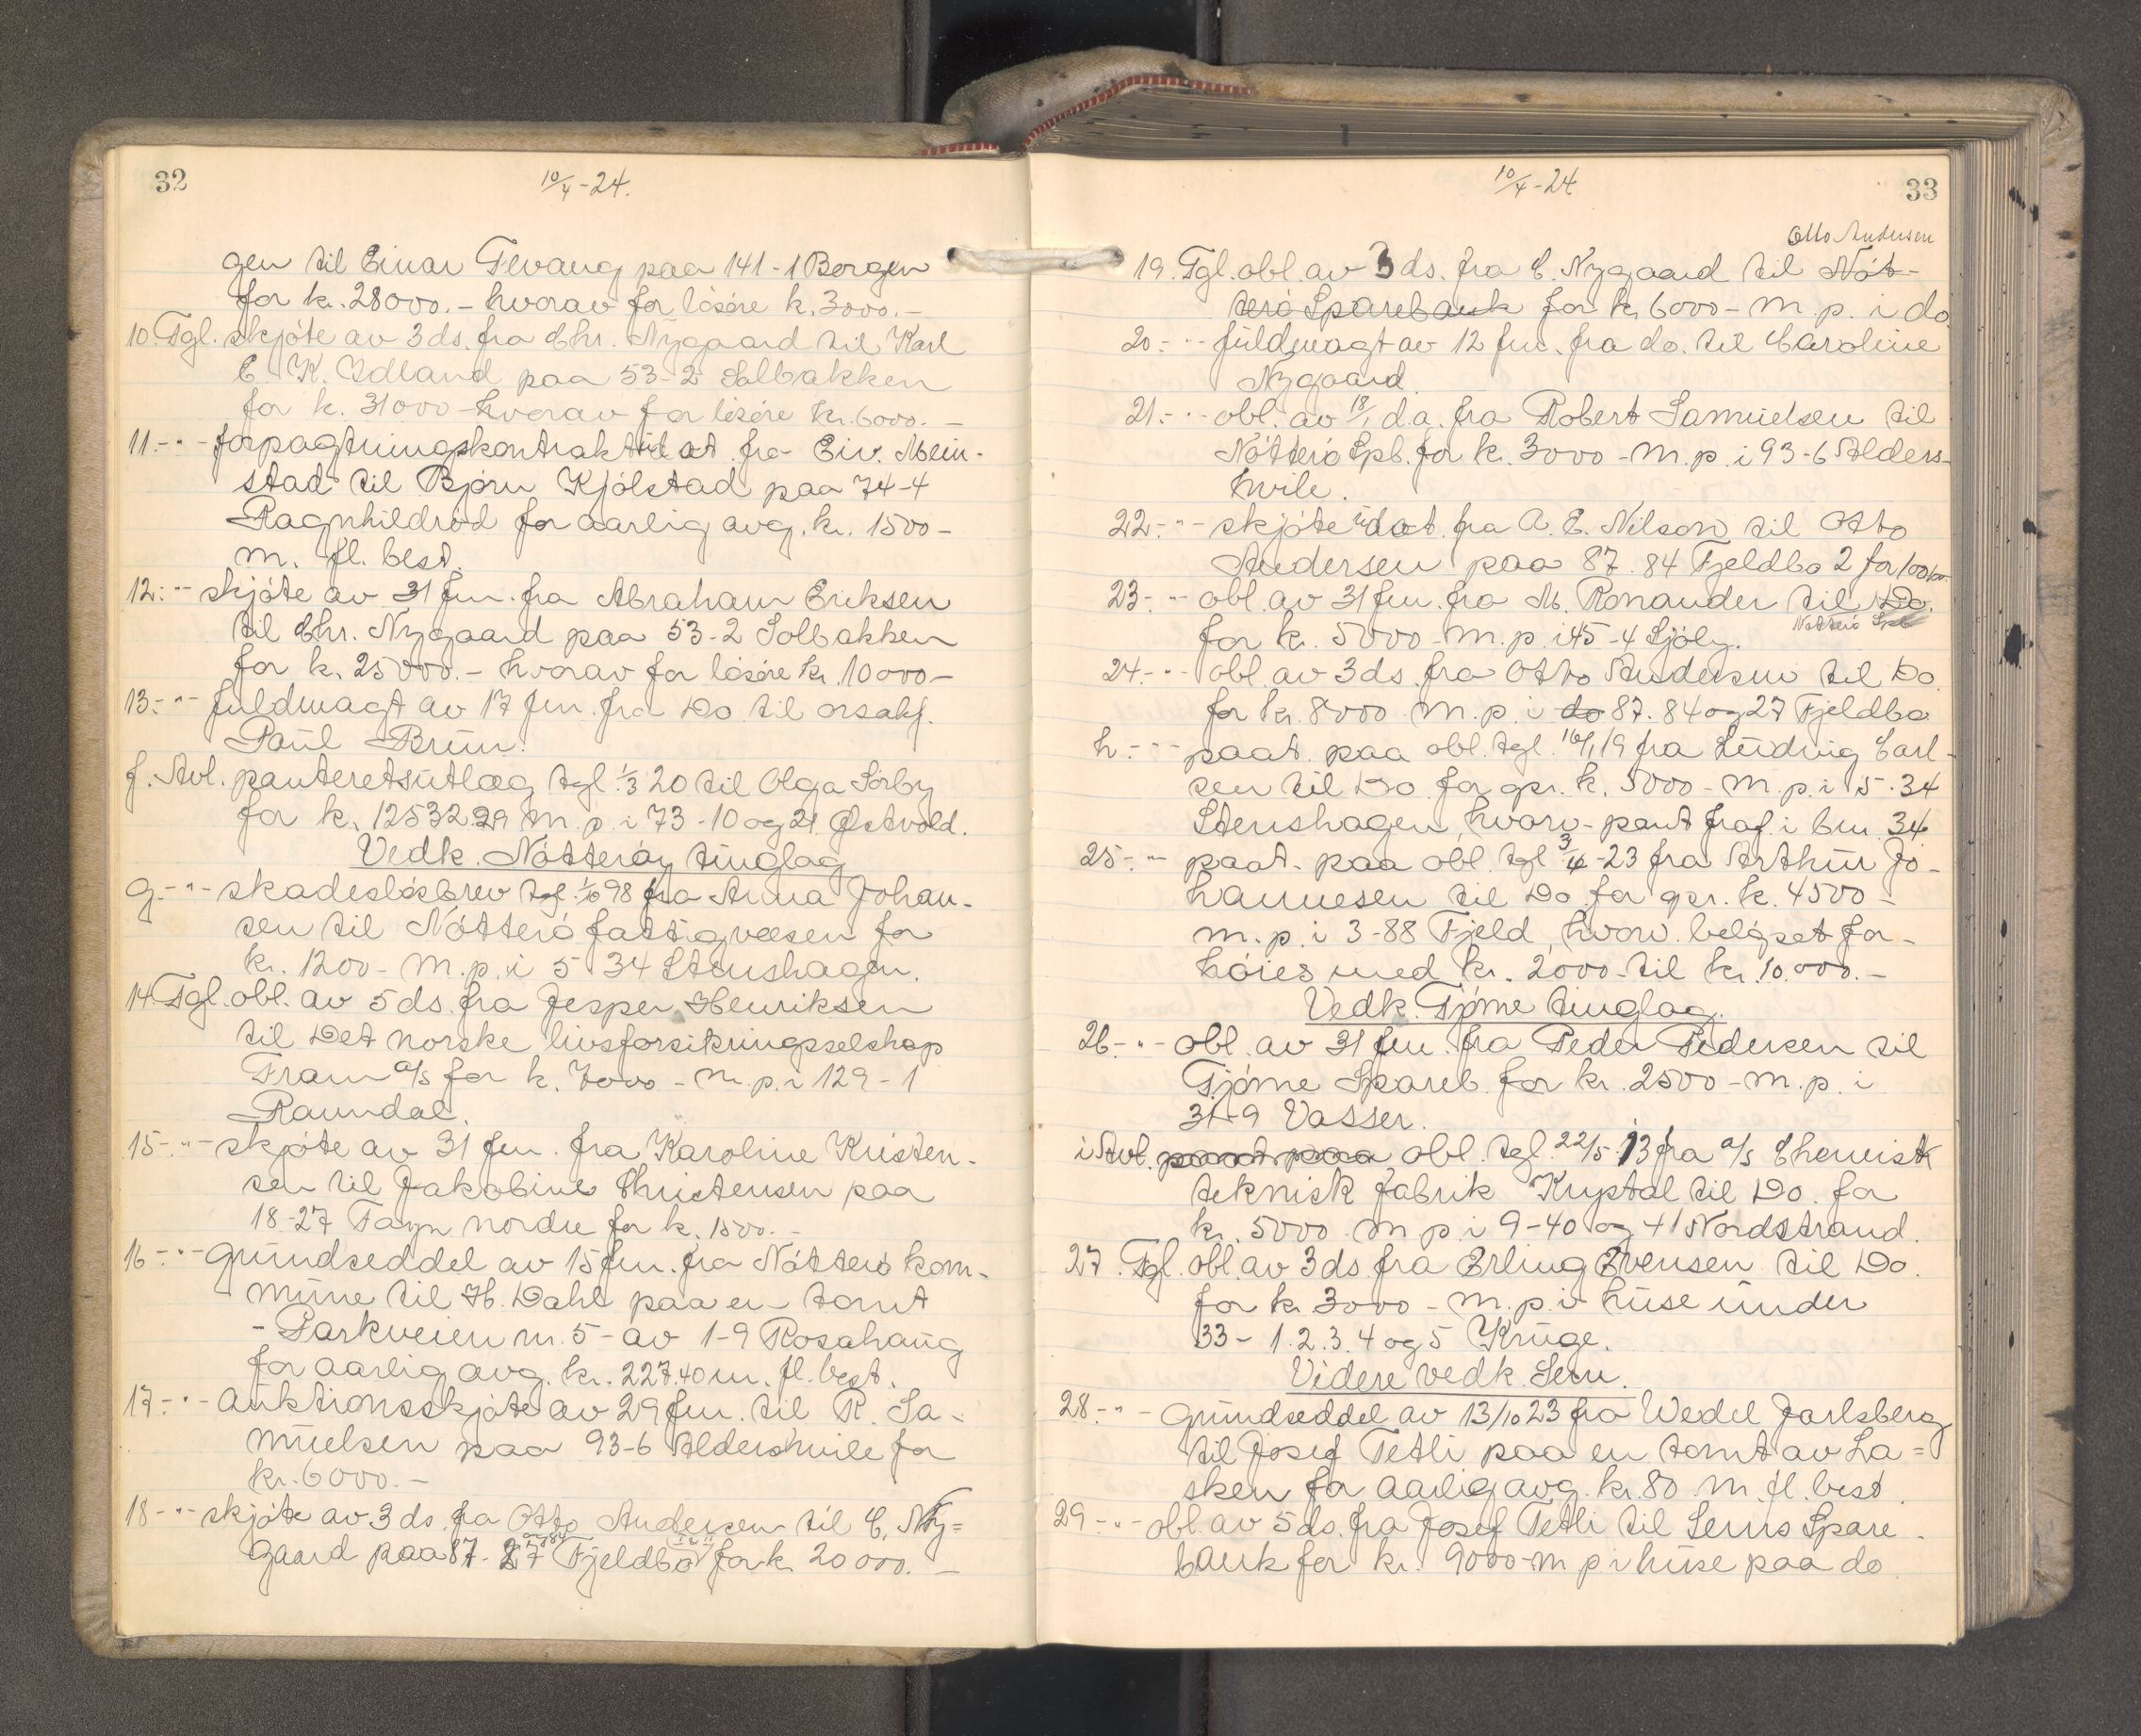 32
10/4-24.
gen til Einar Tevang paa 141-1 Bergen
for kr. 28000.- hvorav for løsøre k. 3000.-
10. Tgl. skjøte av 3 ds. fra Chr. Nygaard til Karl
E. K. Idland paa 53-2 Solbakken
for k. 31000 - hvorav for løsøre kr. 6000.-
11.-"- forpagtningskontrakt ud at. fra Eiv. Mein-
stad til Bjørn Kjølstad paa 74-4
Ragnhildrød for aarlig avg. kr. 1500-
m. fl. best.
12.-"- skjøte av 31 f.m. fra Abraham Eriksen
til Chr. Nygaard paa 53-2 Solbakken
for k. 25000.- hvorav for løsøre kr. 10000-
13.-"- fuldmagt av 17 f.m. fra Do til orsakf.
Paul Bruun.
f. Avl. panteretsutlæg tgl. 1/3 20 til Olga Sørby
for k. 12532.29 m.p. i 73-10 og 21 Østvold.
Vedk. Nøtterøy tinglag
g.-"- skadesløsbrev tgl. 1/10 98 fra Anna Johan-
sen til Nøtterø fattigvæsen for
kr. 1200- m.p. i 5-34 Stenshagen.
14. Tgl. obl. av 5 ds. fra Jesper Henriksen
til Det norske livsforsikringsselskap
Fram a/s for k. 7000- m.p. i 129-1
Ramdal.
15.-"- skjøte av 31 f.m. fra Karoline Kristen-
sen til Jakobine Christensen paa
18-27 Tayn nordre for k. 1500.-
16.-"- grundseddel av 15 f.m. fra Nøtterø kom-
mune til H. Dahl paa en tomt
- Parkveien nr. 5- av 1-9 Rosahaug
for aarlig avg. kr. 227.40 m. fl. best.
17.-"- Auktionsskjøte av 29 f.m. til R. Sa-
muelsen paa 93-6 Aldershvile for
kr. 6000.-
18-"- skjøte av 3 ds. fra Otto Andersen til C. Ny=
og 84
gaard paa 87-27 Fjeldbo for k. 20000.-
33
10/4-24
Otto Andersen
19. Tgl. obl. av 3 ds. fra C. Nygaard til Nøt-
terø Sparebank for kr. 6000- m.p. i do.
20.-"- fuldmagt av 12 f.m. fra do. til Caroline
Nygaard.
21.-"- obl. av 18/1 d.a. fra Robert Samuelsen til
Nøtterø Spb. for kr. 3000- m.p. i 93-6 Alders-
hvile.
22.-"- skjøte udat. fra A. E. Nilson til Otto
Andersen paa 87.84 Fjeldbo 2 for 100 kr.
23.-"- obl. av 31 f.m. fra M. Ronander til Do.
Nøtterø Spb
for kr. 5000- m.p. i 45-4 Sjøly.
24.-"- obl. av 3 ds. fra Otto Andersen til Do.
for kr. 8000 m.p. i do 87.84 og 27 Fjeldbo
h.-"- paat. paa obl. tgl. 16/1 19 fra Ludvig Carl-
sen til Do for opr. k. 5000- m.p. i 5-34
Stenshagen, hvorv. pant fraf. i bnr. 34
25.-"- paat. paa obl. tgl 3/4-23 fra Arthur Jo-
hannesen til Do for opr. k. 4500-
m.p. i 3-88 Fjeld, hvorv. beløpet for-
høies med kr. 2000- til kr. 10.000.-
Vedk. Tjøme tinglag.
26.-"- obl. av 31 f.m. fra Peder Pedersen til
Tjøme Spareb. for kr. 2500- m.p. i
31-9 Vasser.
i Avl. paat. paa obl. tgl. 22/5-13 fra a/s Chemisk
teknisk fabrik Krystal til Do. for
kr. 5000 m.p. i 9-40 og 41 Nordstrand.
27. Tgl. obl. av 3 ds. fra Erling Evensen til Do.
for k. 3000- m.p. i huse under
33- 1.2.3.4 og 5 Kruge.
Videre vedk. Sem.
28.-"- grundseddel av 13/10 23 fra Wedel Jarlsberg
til Josef Tetli paa en tomt av La=
sken for aarlig avg. kr. 80 m. fl. best.
29.-"- obl. av 5 ds. fra Josef Tetli til Sems Spare-
bank for kr. 9000- m.p. i huse paa do